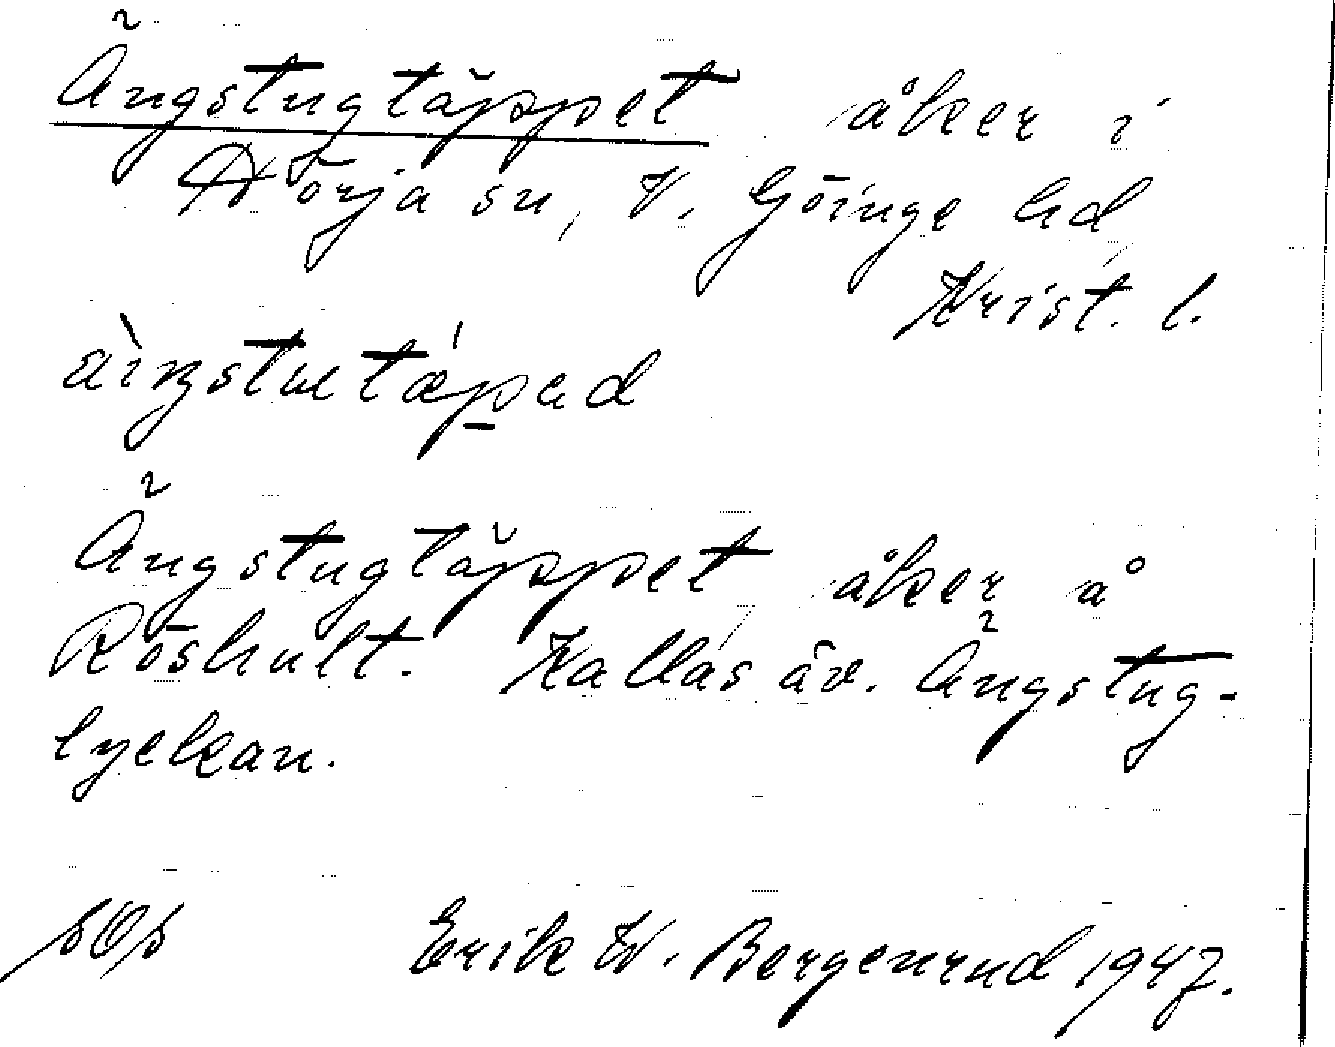 Ängstugtäppet åker i
Hörja sn, V. Göinge hd,
Krist. l.
Ängstugtäppet, åker å
Röshult. Kallas äv. Ängstug-
lyckan.
Erik W. Bergenrud 1947.